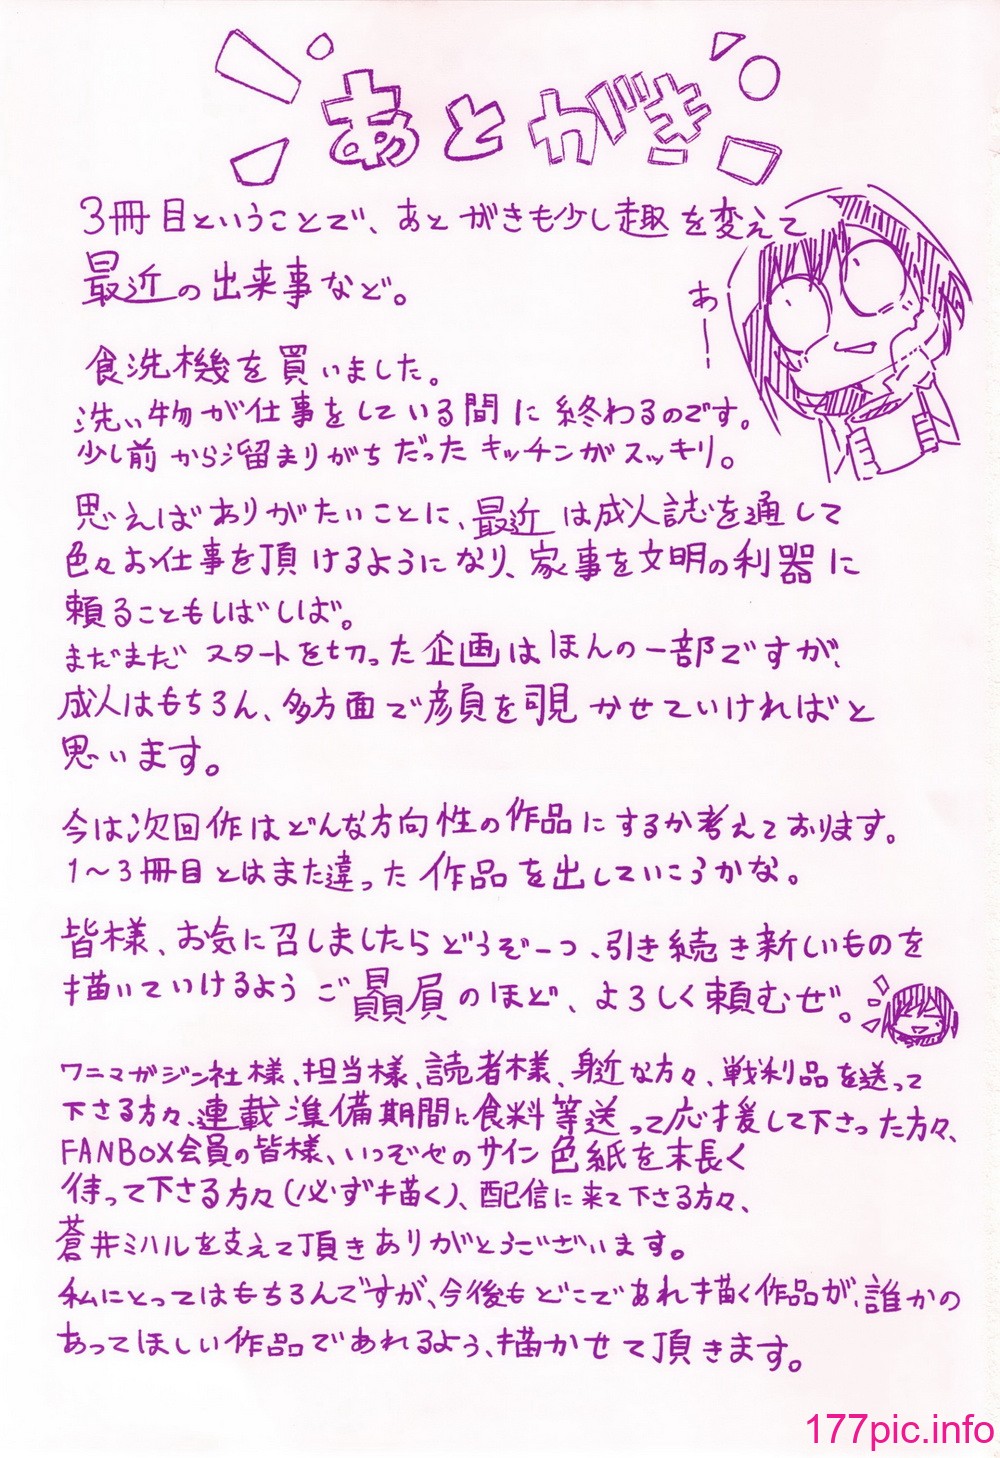 あとがき
3冊目ということで、あとがきも少し趣を変えて
最近の出来事など。
あーー
食洗機を買いました。
洗い物が仕事をしている間に終わるのです。
少し前から溜まりがちだったキッチンがスッキリ。
思えばありがたいことに、最近は成人誌を通して
色々お仕事を頂けるようになり、家事を文明の利器に
頼ることもしばしば。
まだまだスタートを切った企画はほんの一部ですが、
成人はもちろん、多方面で顔を覗かせていければと
思います。
今は次回作はどんな方向性の作品にするか考えております。
1〜3冊目とはまた違った作品を出していこうかな。
皆様、お気に召しましたらどうぞ一つ、引き続き新しいものを
描いていけるようご贔屓のほど、よろしく頼むぜ。
ワニマガジン社様、担当様、読者様、身近な方々、戦利品を送って
下さる方々、連載準備期間に食料等送って応援して下さった方々、
FANBOX会員の皆様、いつぞやのサイン色紙を末長く
待って下さる方々(必ず描く)、配信に来て下さる方々、
蒼井ミハルを支えて頂きありがとうございます。
私にとってはもちろんですが、今後もどこであれ描く作品が、誰かの
あってほしい作品であれるよう、描かせて頂きます。
177pic.info